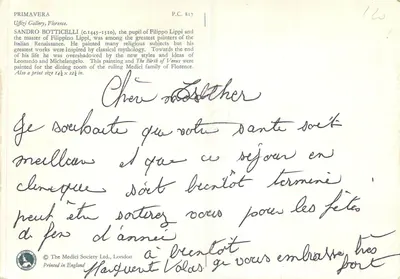 PRIMAVERA P.C. 817
Uffizi Gallery, Florence.
SANDRO BOTTICELLI (c.1445-1510), the pupil of Filippo Lippi and
the master of Filippino Lippi, was among the greatest painters of the
Italian Renaissance. He painted many religious subjects but his
greatest works were inspired by classical mythology. Towards the end
of his life he was overshadowed by the new styles and ideas of
Leonardo and Michelangelo. This painting and The Birth of Venus were
painted for the dining room of the ruling Medici family of Florence.
Also a print size
Chère Esther
Je souhaite que votre santé soit
meilleure et que ce séjour en
clinique soit bientôt terminé
peut être sortirez vous pour les fêtes
de fin d'année
à bientôt
je vous embrasse très
fort
© The Medici Society Ltd., London
Printed in England